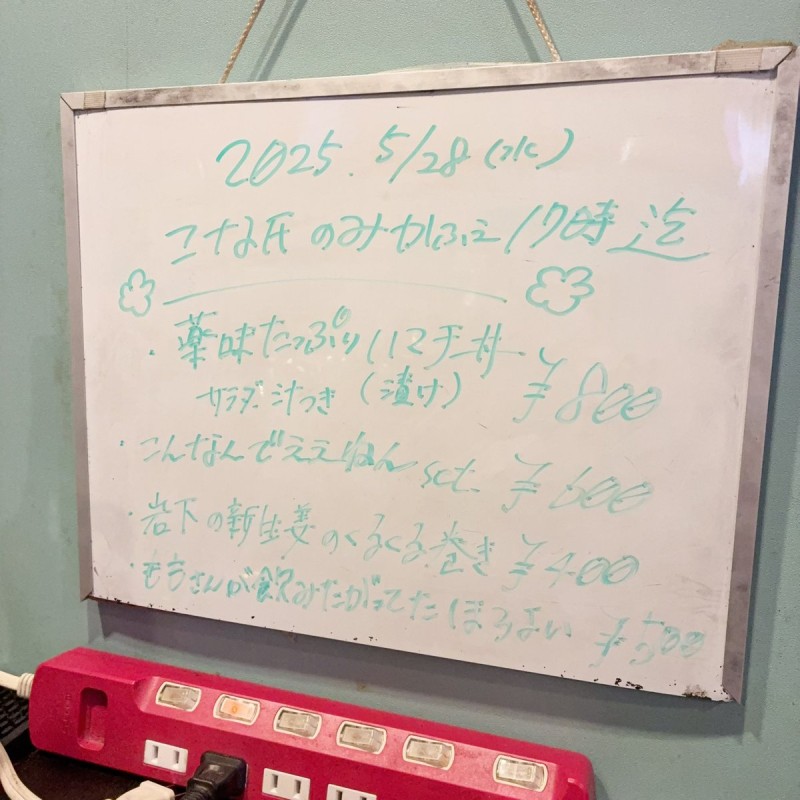 2025.5/28(水)
こな氏のみかふぇ 17時迄
・薬味たっぷりハマチ丼 ¥800
サラダ・汁つき(漬け)
・こんなんでええねん set ¥600
・岩下の新生姜のくるくる巻き ¥400
・もちさんが飲みたがってたほろよい ¥500